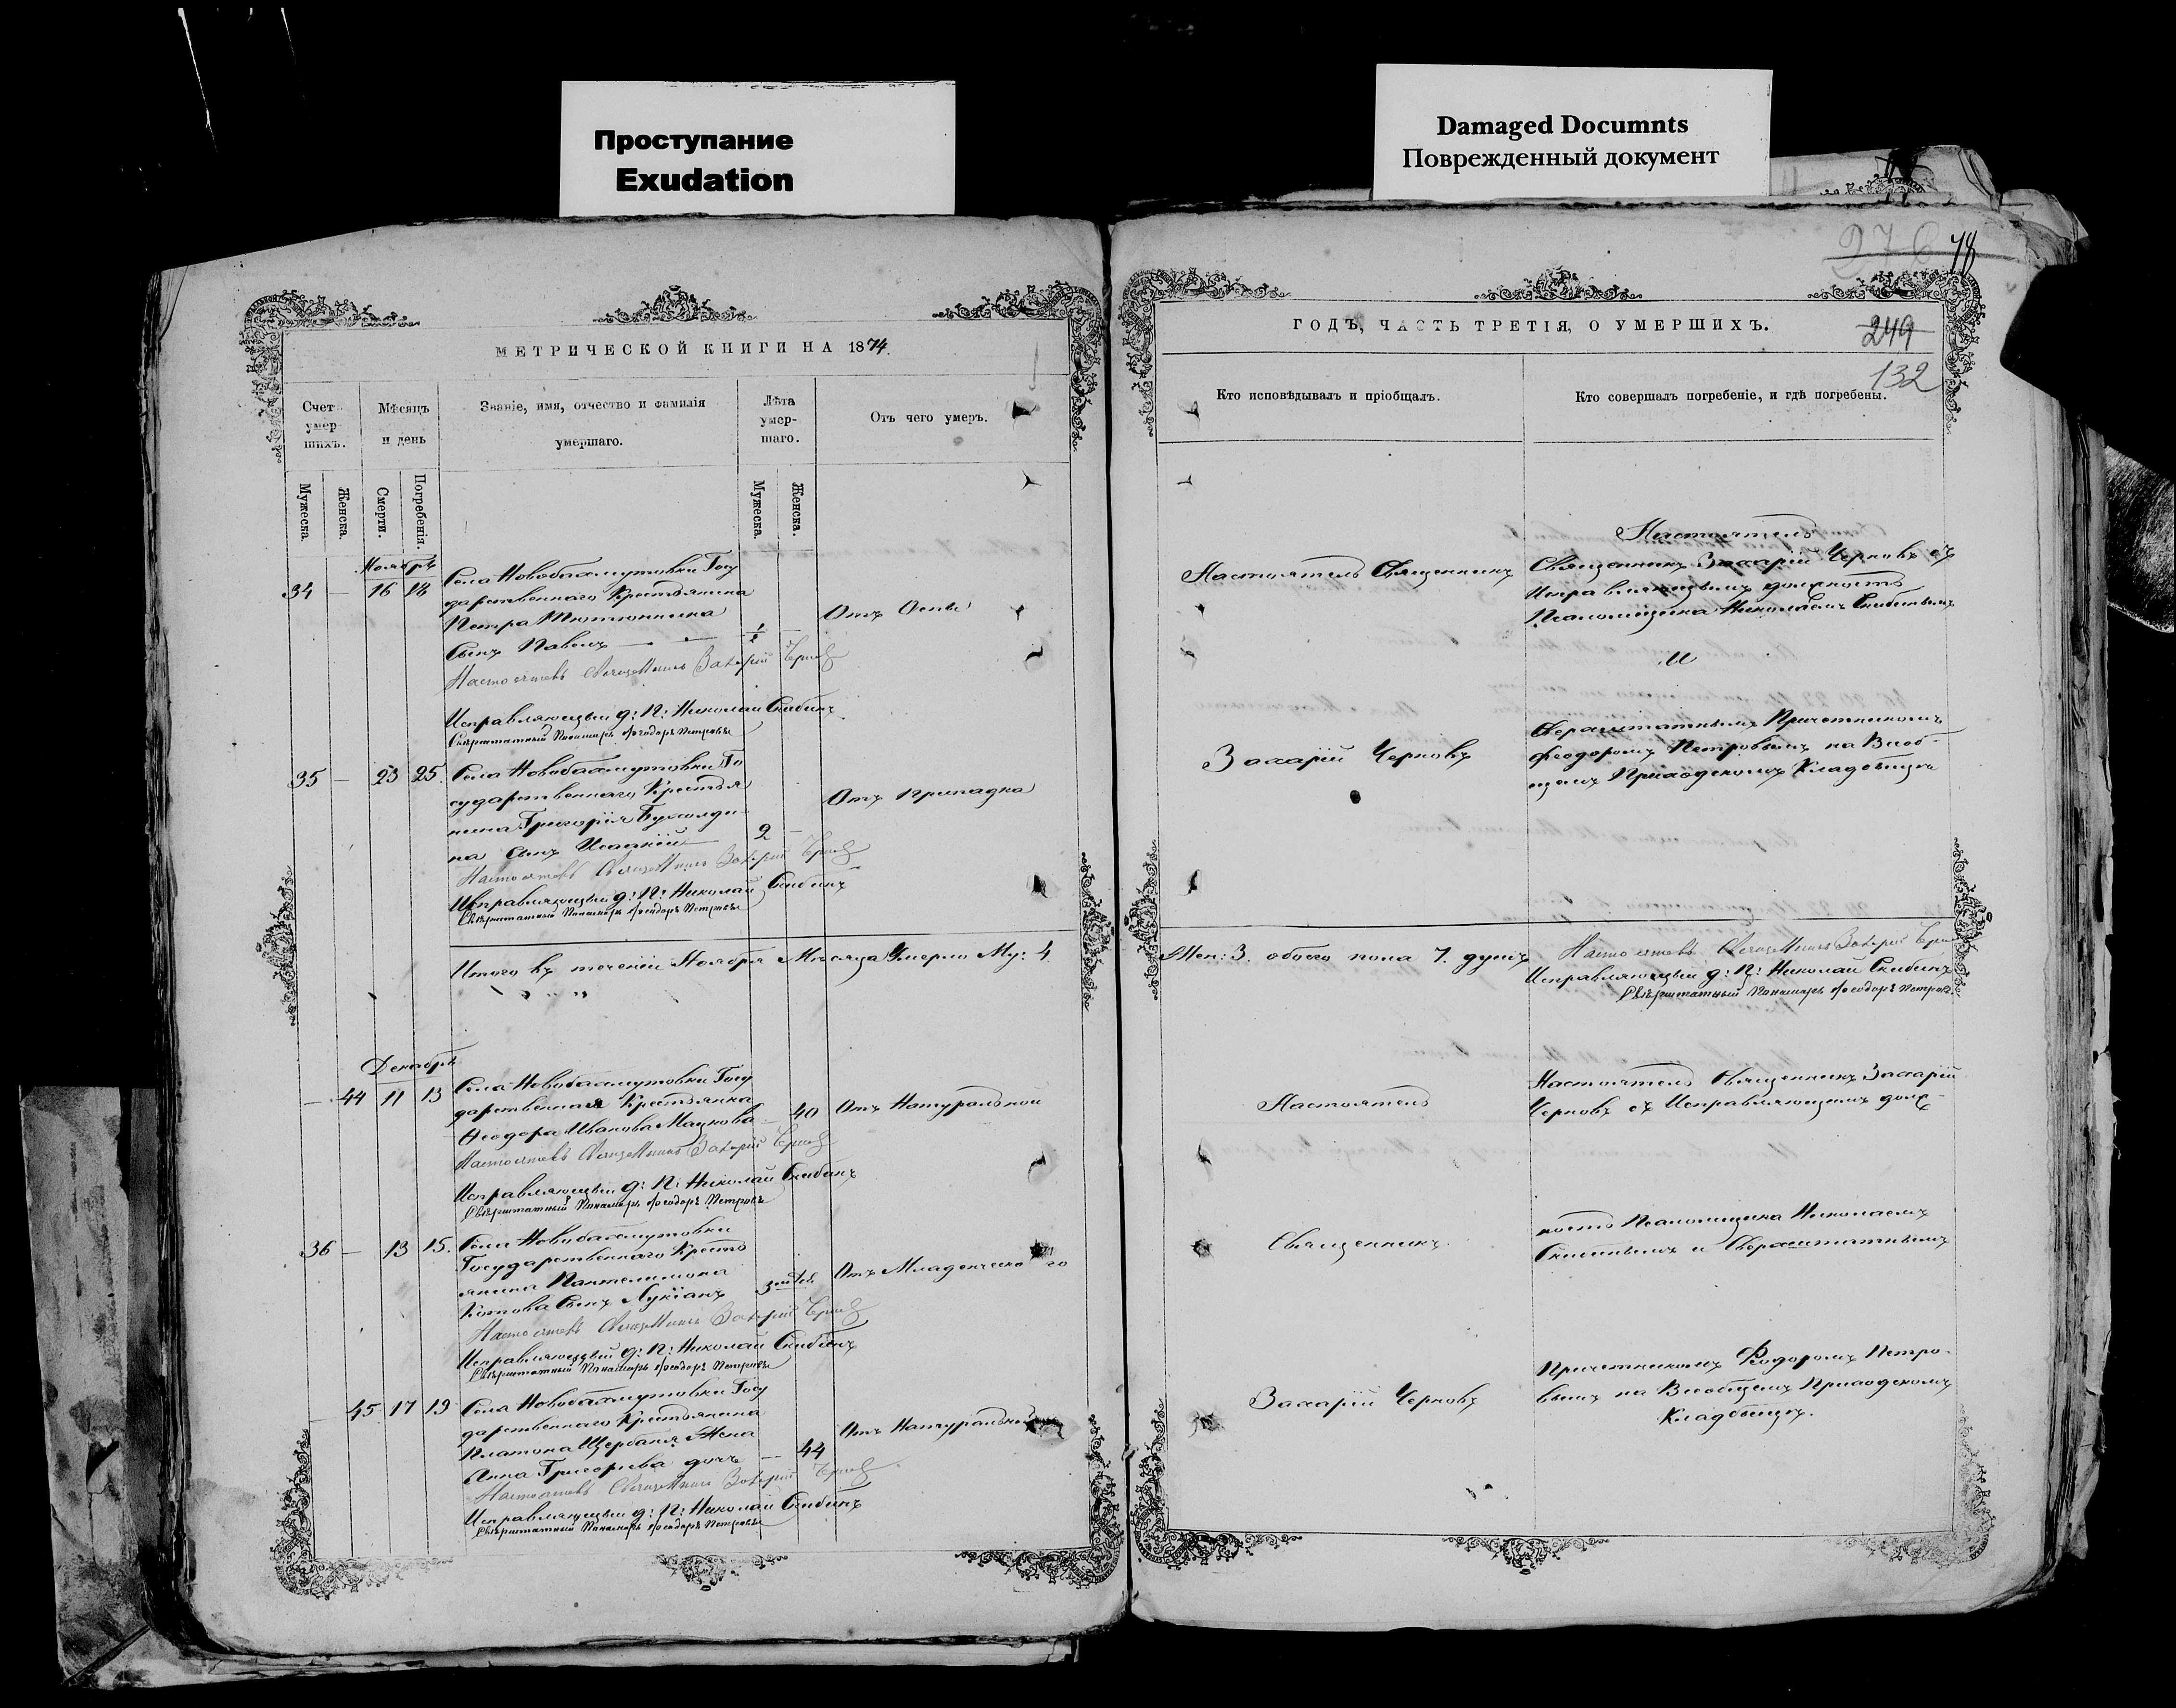 Проступание
Exudation
Damaged Documnts
Поврежденный документ
МЕТРИЧЕСКОЙ КНИГИ НА 1874.
Счетъ умер-шихъ.
Мѣсяцъ и день
Званіе, имя, отчество и фамилія умершаго.
Лѣта умер-шаго.
Отъ чего умеръ.
Мужеска.
Женска.
Смерти.
Погребенія.
Мужеска.
Женска.
Ноябрь
34 — 16 18
Села Новобахмутовки Госу
дарственнаго Крестьянина
Петра Тютюнника
Сынъ Павелъ
Отъ Оспы
Настоятель Священникъ Захарій Черновъ
Исправляющій д: П: Николай Скибинъ
Сверхштатный Пономарь Ѳеодоръ Петровъ
35 — 23 25.
Села Новобахмутовки Го
сударственнаго Крестья
нина Григорія
на Сынъ
2 —
Отъ Припадка
Настоятель Священникъ Захарій Черновъ
Исправляющій д: П: Николай Скибинъ
Сверхштатный Пономарь Ѳеодоръ Петровъ
Итого въ теченіи Ноября Мѣсяца Умерло Му: 4
Декабрь
— 44 11 13
Села Новобахмутовки Госу
дарственная Крестьянка
Ѳеодора Иванова
40
Отъ Натуральной
Настоятель Священникъ Захарій Черновъ
Исправляющій д: П: Николай Скибинъ
Сверхштатный Пономарь Ѳеодоръ Петровъ
36 — 13 15.
Села Новобахмутовки
Государственнаго Кресть
янина Пантелимона
Котова Сынъ Лукіанъ
Отъ Младенческаго
Настоятель Священникъ Захарій Черновъ
Исправляющій д: П: Николай Скибинъ
Сверхштатный Пономарь Ѳеодоръ Петровъ
— 45 17 19
Села Новобахмутовки Госу
дарственнаго Крестьянина
Платона Щербаня Жена
Анна Григорьева дочь
— 44
Отъ Натуральной
Настоятель Священникъ Захарій Черновъ
Исправляющій д: П: Николай Скибинъ
Сверхштатный Пономарь Ѳеодоръ Петровъ
276
78
ГОДЪ, ЧАСТЬ ТРЕТІЯ, О УМЕРШИХЪ.
249
132
Кто исповѣдывалъ и пріобщалъ.
Кто совершалъ погребеніе, и гдѣ погребены.
Настоятель Священникъ
Захарій Черновъ
Настоятель
Священникъ Захарій Черновъ съ
Исправляющимъ должность
Псаломщика Николаемъ Скибинымъ
и
Сверхштатнымъ Причетникомъ
Ѳеодоромъ Петровымъ на Всеоб-
щемъ Приходскомъ Кладбищѣ
Жен: 3. обоего пола 7. душъ
Настоятель Священникъ Захарій Черновъ
Исправляющій д: П: Николай Скибинъ
Сверхштатный Пономарь Ѳеодоръ Петровъ
Настоятель
Священникъ.
Захарій Черновъ
Настоятель Священникъ Захарій
Черновъ съ Исправляющимъ долж-
ность Псаломщика Николаемъ
Скибинымъ и Сверхштатнымъ
Причетникомъ Ѳеодоромъ Петро-
вымъ на Всеобщемъ Приходскомъ
Кладбищѣ.